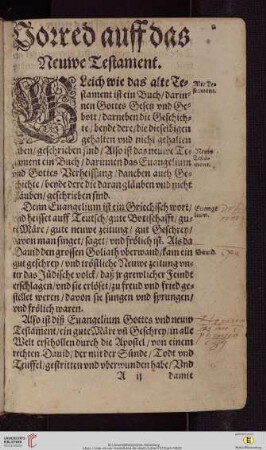 Vorred auff das
Neuwe Testament.
GLeich wie das alte Te-
stament ist ein Buch/ darin-
nen Gottes Gesetz vnd Ge-
bott/ darneben die Geschich-
te/ beyde dere/ die dieselbigen
gehalten vnd nicht gehalten
haben/ geschrieben sind/ Also ist das neuwe Te-
stament ein Buch/ darinnen das Euangelium
vnd Gottes Verheissung/ daneben auch Ge-
schichte/ beyde dere die daran glauben vnd nicht
glauben/ geschrieben sind.
Denn Euangelium ist ein Griechisch wort/
vnd heisset auff Teutsch/ gute Bottschafft/ gu-
te Märe/ gute neuwe zeitung/ gut Geschrey/
davon man singet/ saget/ vnd frölich ist. Als da
Dauid den grossen Goliath vberwand/ kam ein
gut geschrey/ vnd tröstliche Neuwe zeitung vn-
ter das Jüdische volck/ daß jr grewlicher Feindt
erschlagen/ vnd sie erlöset/ zu freud vnd fried ge-
stellet weren/ davon sie sungen vnd sprungen/
vnd frölich waren.
Also ist diß Euangelium Gottes vnd neuw
Testament/ ein gute Märe vn Geschrey/ in alle
Welt erschollen durch die Apostel/ von einem
rechten Dauid/ der mit der Sünde/ Todt vnd
Teuffel/ gestritten vnd vberwunden habe/ Vnd
A ij damit
Alt Te-
stament.
Neuw
Testa-
ment.
Euange-
lium.
Dauid.